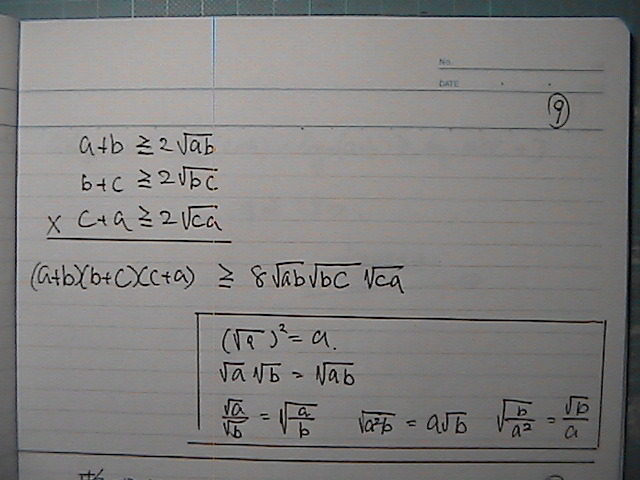 No.
DATE
⑨
a+b ≧ 2√ab
b+c ≧ 2√bc
× c+a ≧ 2√ca
(a+b)(b+c)(c+a) ≧ 8√ab√bc √ca
(√a)² = a.
√a √b = √ab
√a/√b = √(a/b) √a²b = a√b √(b/a²) = √b/a